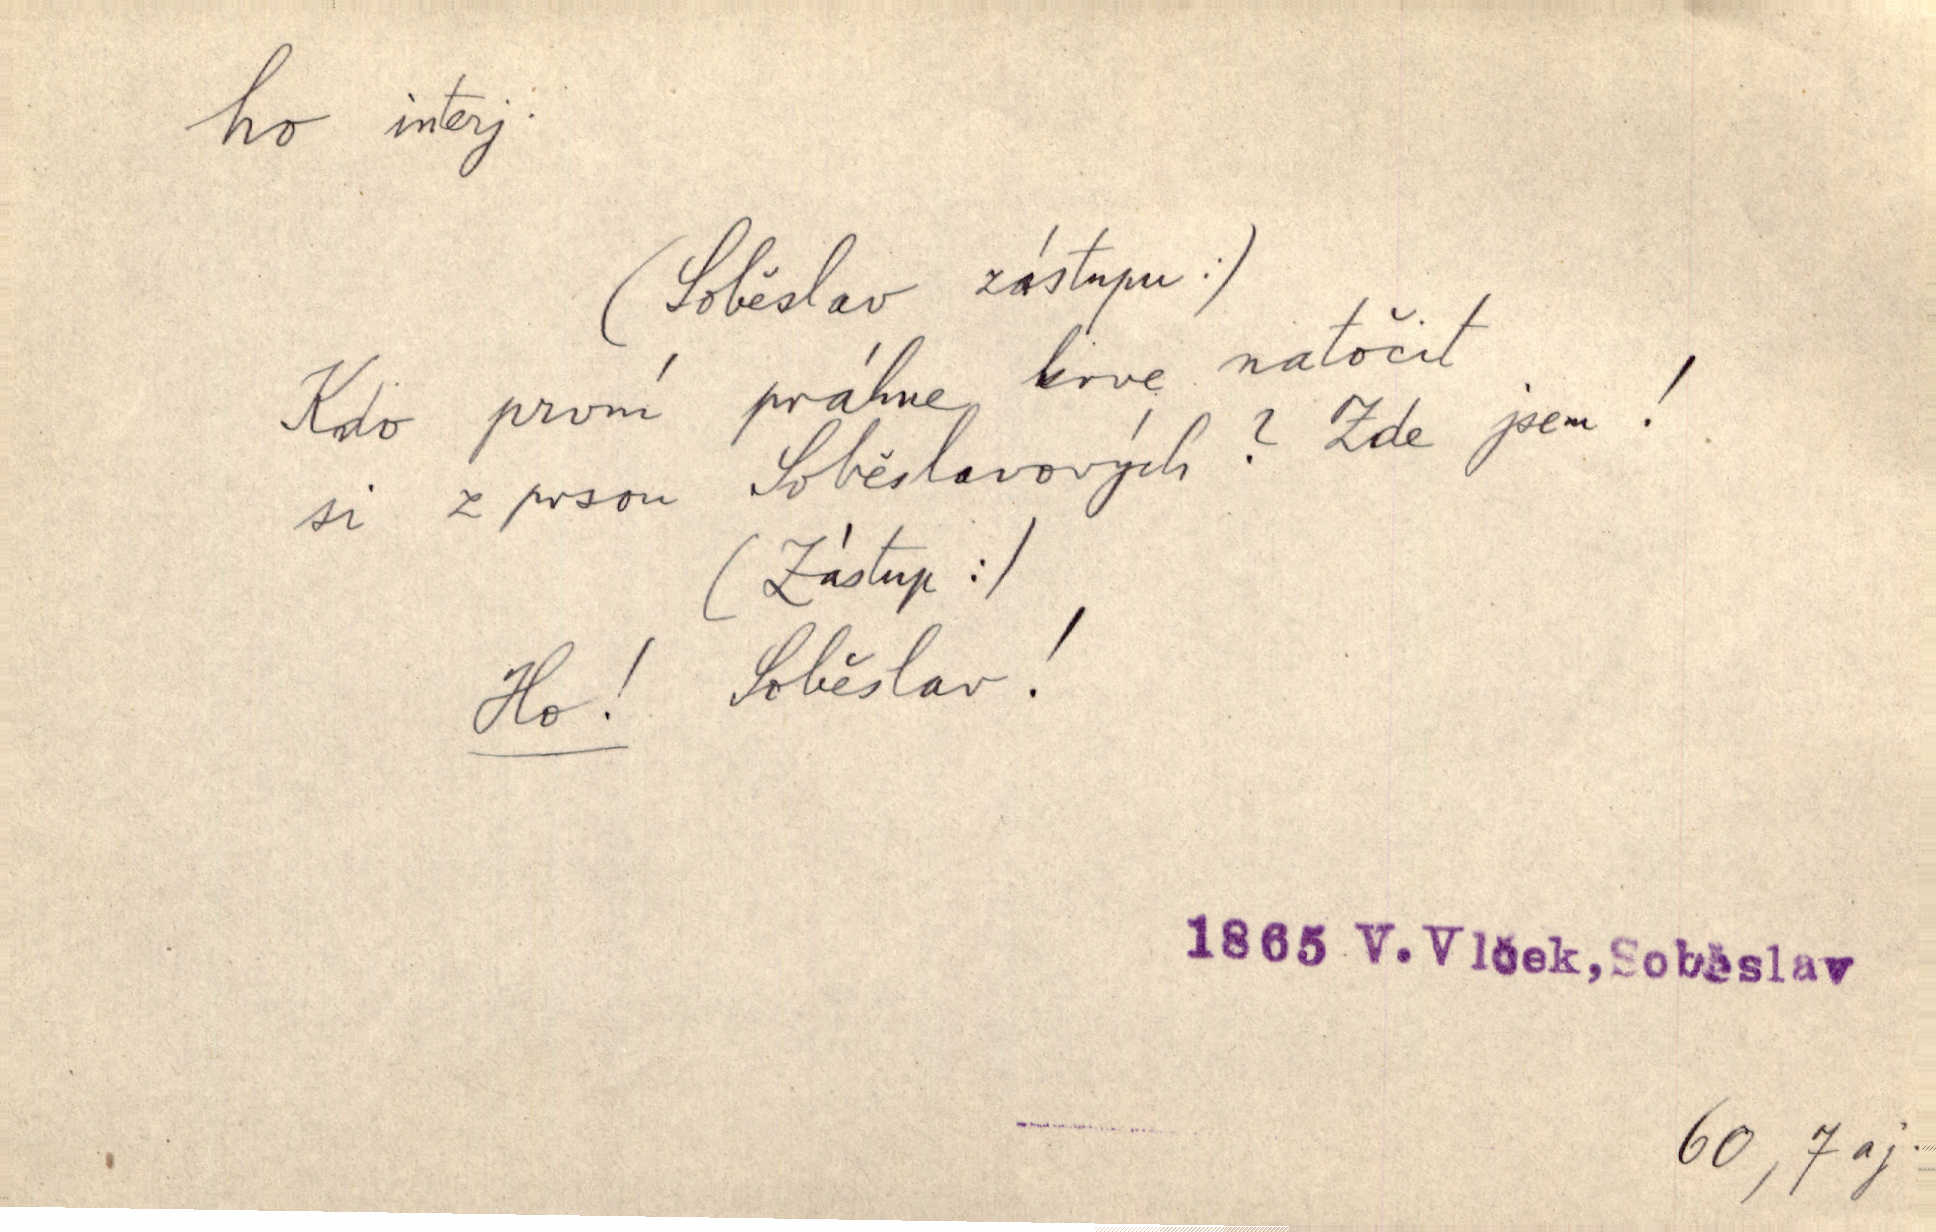 ho interj.
(Soběslav zástupu:)
Kdo první práhne krve natočit
si z prsou Soběslavových? Zde jsem!
(Zástup:)
Ho! Soběslav!
1865 V. Vlček, Soběslav
60, 7 aj.